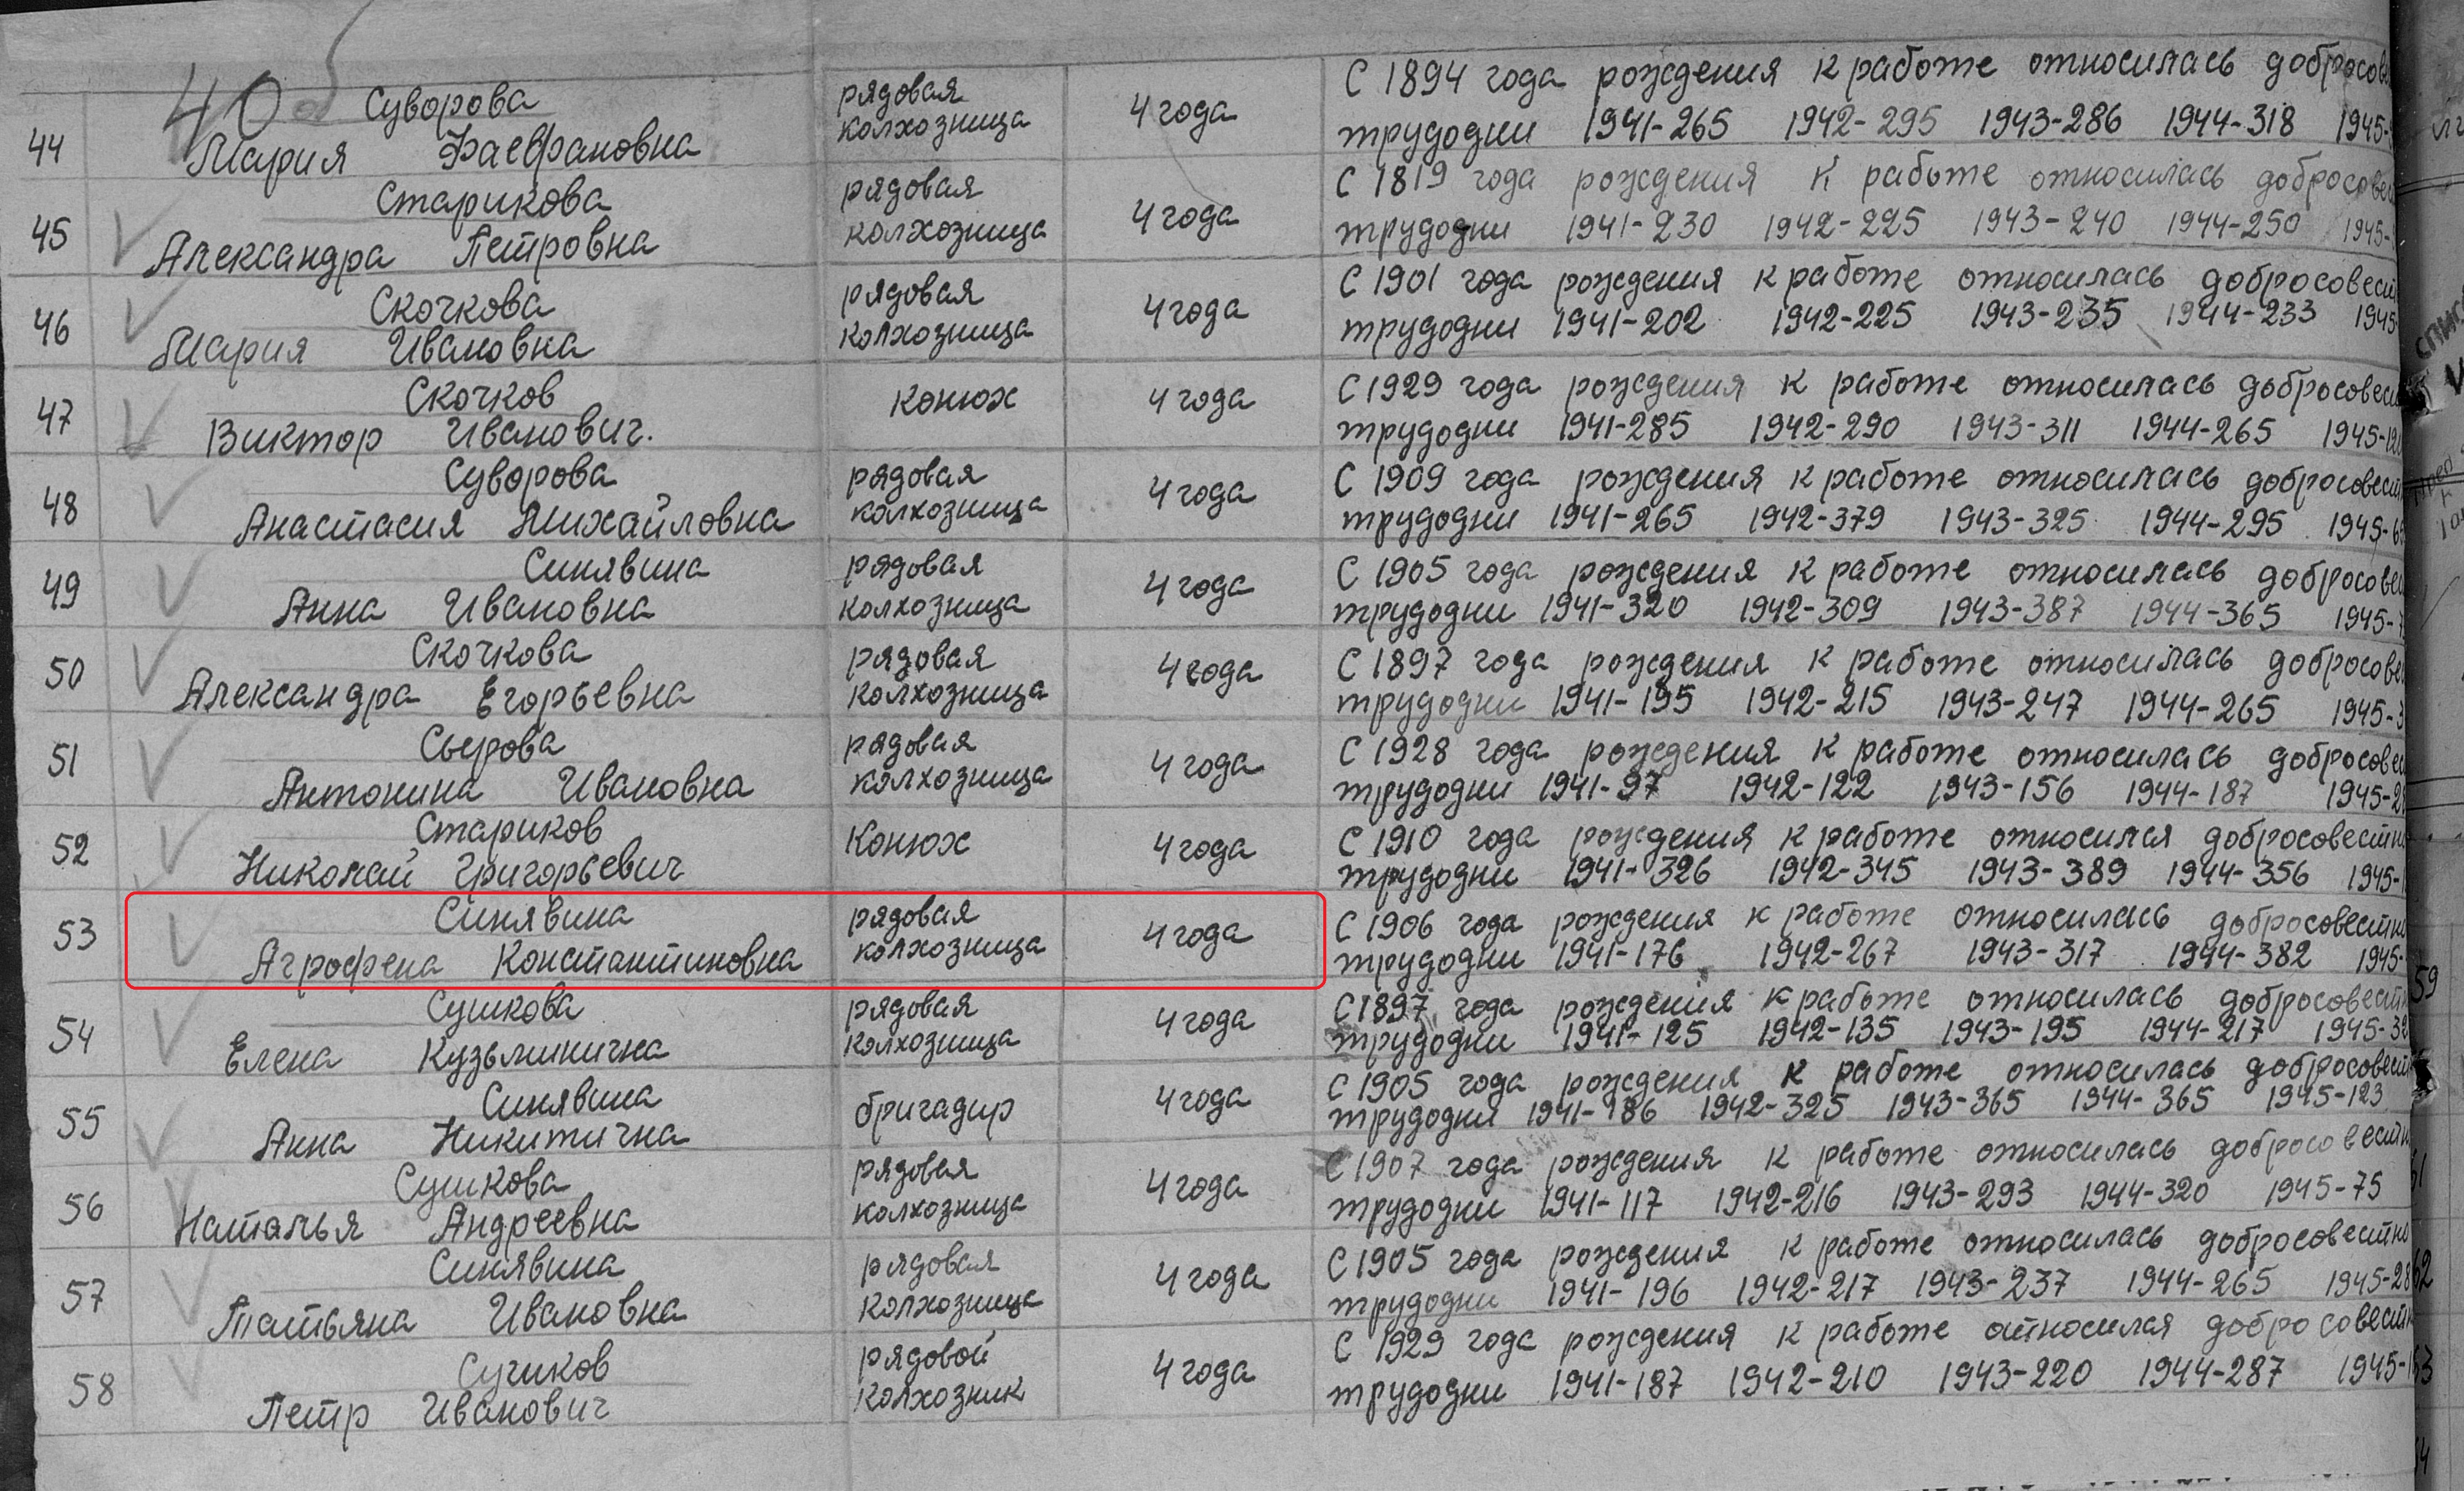 40 об
44 Суворова рядовая 4 года С 1894 года рождения к работе относилась добросов
Мария колхозница трудодни 1941-265 1942-295 1943-286 1944-318 1945-
45 Старикова рядовая 4 года С 1819 года рождения к работе относилась добросовес
Александра Петровна колхозница трудодни 1941-230 1942-225 1943-240 1944-250 1945-
46 Скочкова рядовая 4 года С 1901 года рождения к работе относилась добросовест
Мария Ивановна колхозница трудодни 1941-202 1942-225 1943-235 1944-233 1945-
47 Скочков конюх 4 года С 1929 года рождения к работе относилась добросовес
Виктор Иванович. трудодни 1941-285 1942-290 1943-311 1944-265 1945-
48 Суворова рядовая 4 года С 1909 года рождения к работе относилась добросовест
Анастасия Михайловна колхозница трудодни 1941-265 1942-379 1943-325 1944-295 1945-
49 Синявина рядовая 4 года С 1905 года рождения к работе относилась добросовес
Анна Ивановна колхозница трудодни 1941-320 1942-309 1943-387 1944-365 1945-
50 Скочкова рядовая 4 года С 1897 года рождения к работе относилась добросовес
Александра Егорьевна колхозница трудодни 1941-195 1942-215 1943-247 1944-265 1945-3
51 Сьерова рядовая 4 года С 1928 года рождения к работе относилась добросовес
Антонина Ивановна колхозница трудодни 1941-97 1942-122 1943-156 1944-187 1945-2
52 Стариков Конюх 4 года С 1910 года рождения к работе относился добросовестно
Николай Григорьевич трудодни 1941-326 1942-345 1943-389 1944-356 1945-
53 Синявина рядовая 4 года С 1906 года рождения к работе относилась добросовестно
Агрофена Константиновна колхозница трудодни 1941-176 1942-267 1943-317 1944-382 1945-
54 Сушкова рядовая 4 года С 1897 года рождения к работе относилась добросовестн
Елена Кузьминична колхозница трудодни 1941-125 1942-135 1943-195 1944-217 1945-32
55 Синявина бригадир 4 года С 1905 года рождения к работе относилась добросовест
Анна Никитична трудодни 1941-186 1942-325 1943-365 1944-365 1945-123
56 Сушкова рядовая 4 года С 1907 года рождения к работе относилась добросовестн
Наталья Андреевна колхозница трудодни 1941-117 1942-216 1943-293 1944-320 1945-75
57 Синявина рядовая 4 года С 1905 года рождения к работе относилась добросовестно
Татьяна Ивановна колхозница трудодни 1941-196 1942-217 1943-237 1944-265 1945-28
58 Сушков рядовой 4 года С 1929 года рождения к работе относился добросовестн
Петр Иванович колхозник трудодни 1941-187 1942-210 1943-220 1944-287 1945-
59
62